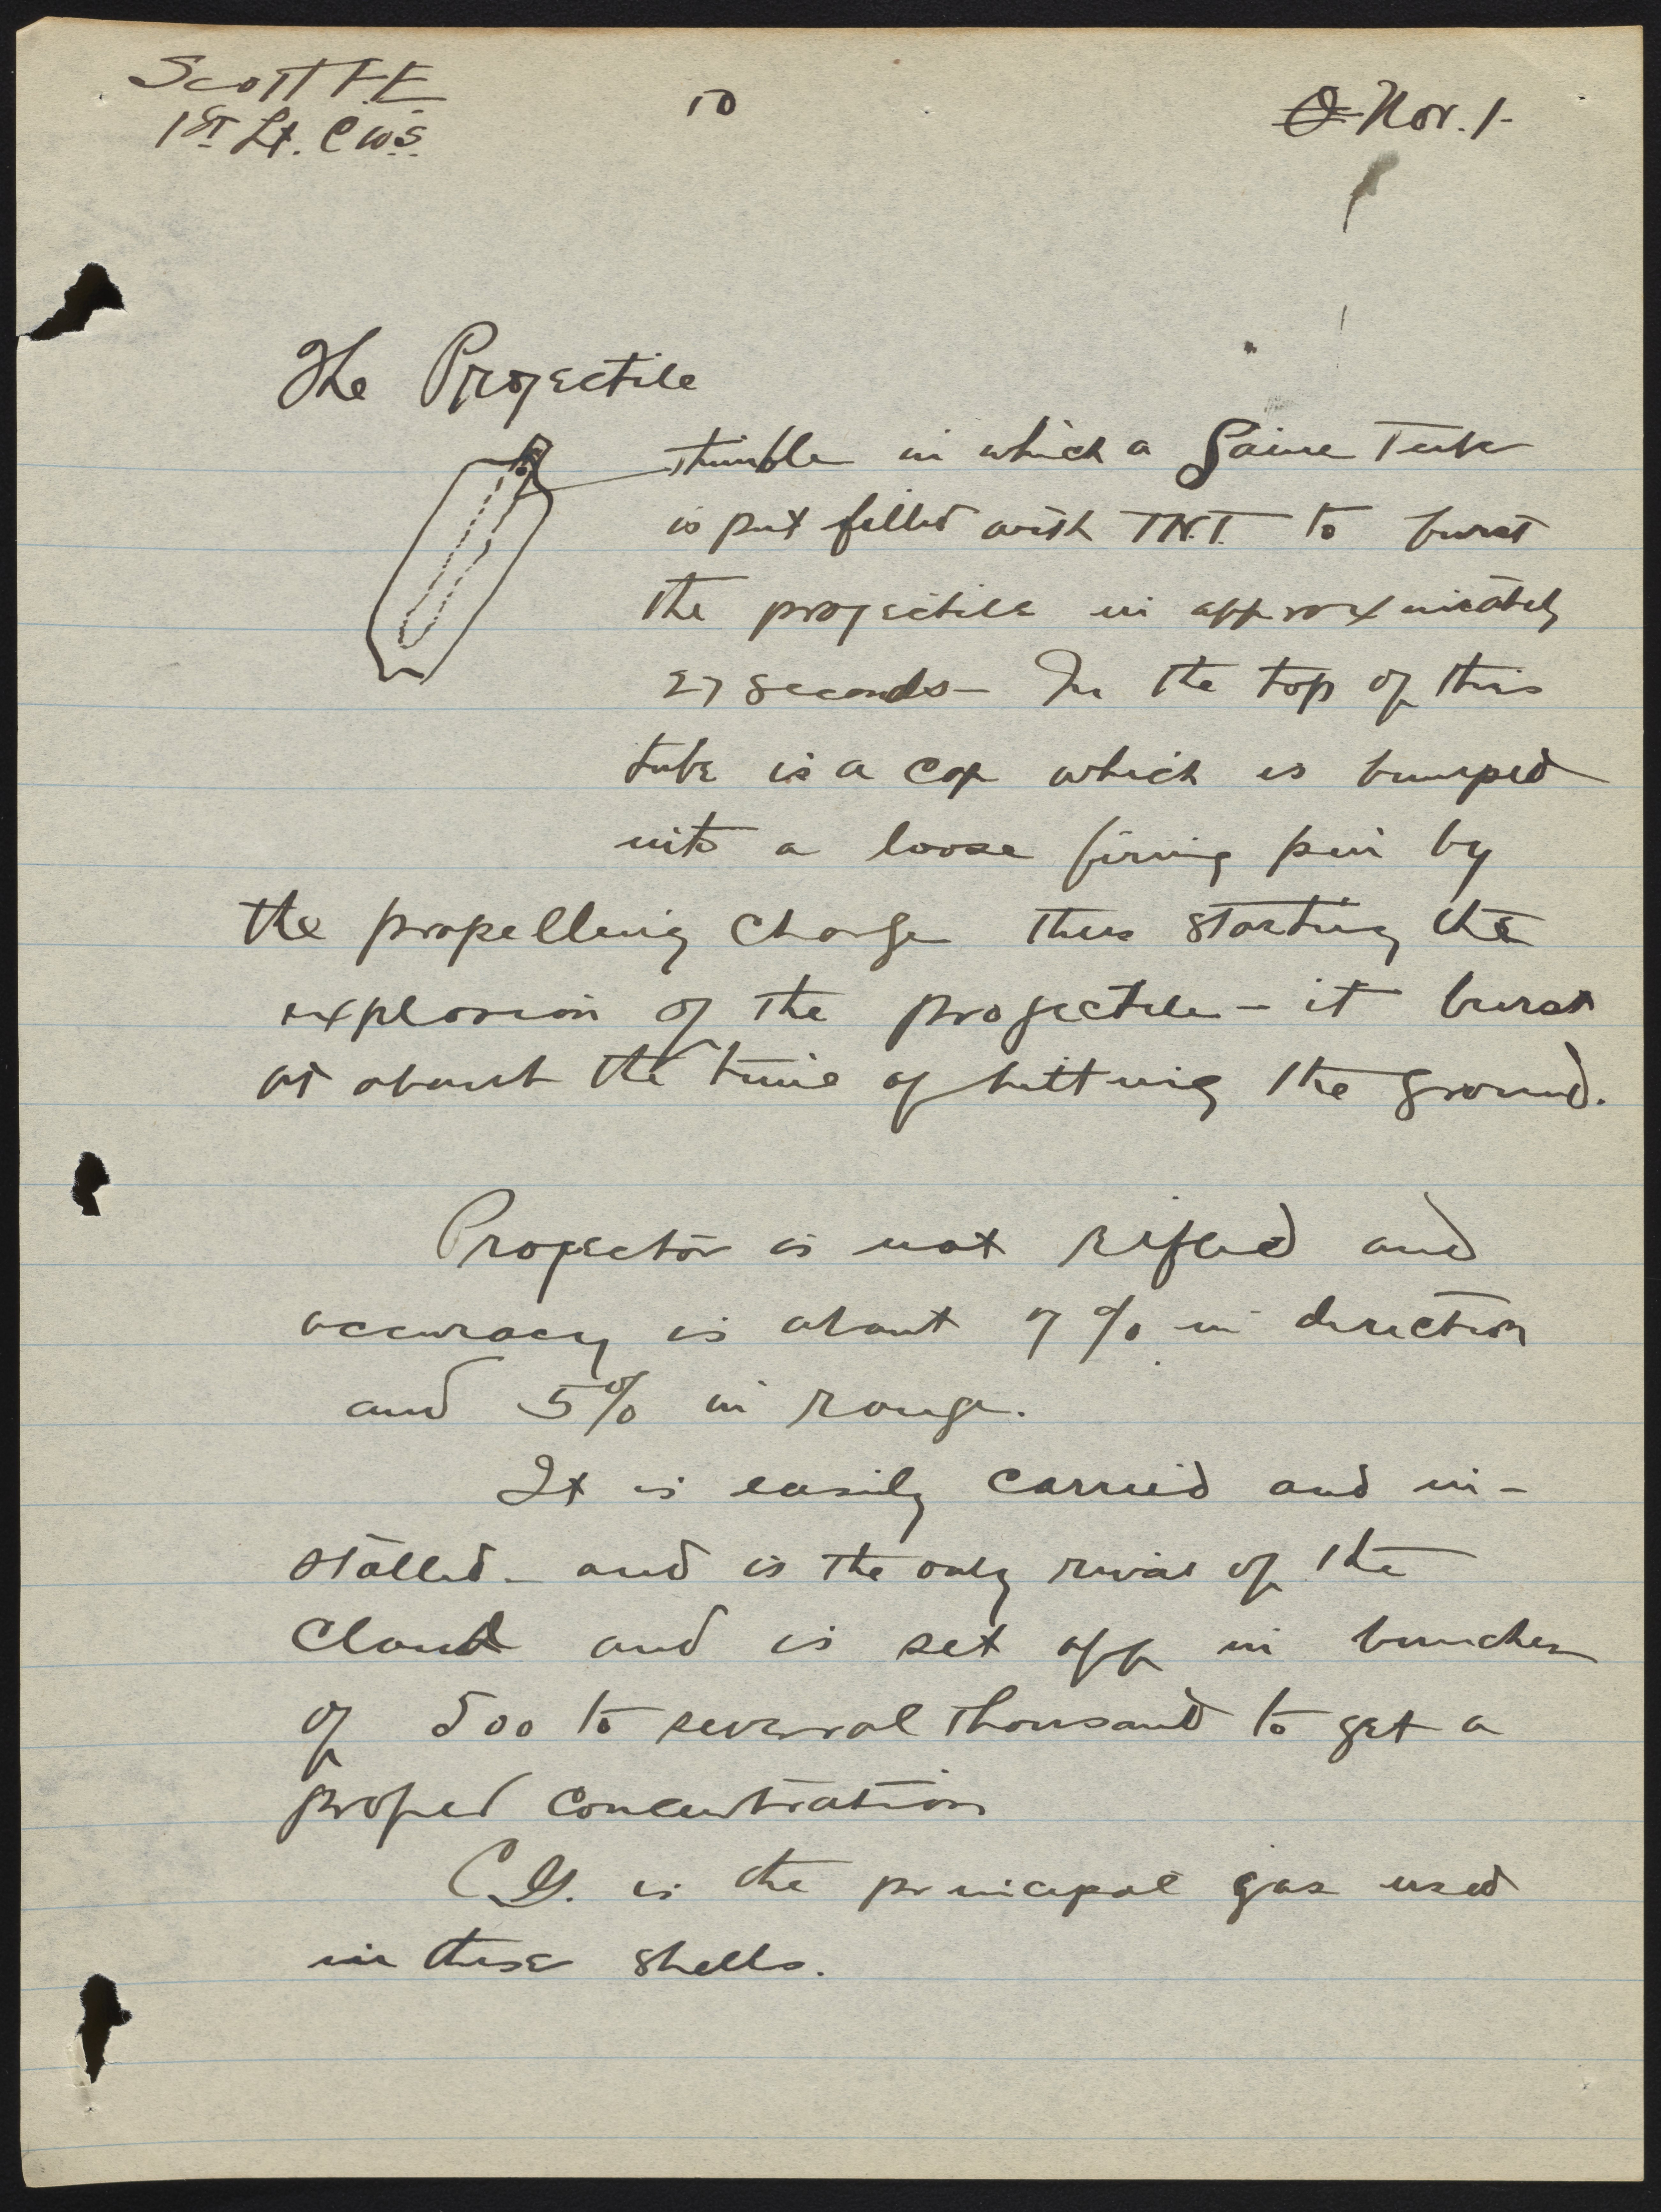 Scott F.E.
1st Lt. C.W.S.
10
Nov. 1-
The Projectile
thimble in which a Gaine Tube
is put filled with T.N.T. to burst
the projectile in approximately
27 seconds - In the top of this
tube is a cap which is bumped
into a loose firing pin by
the propelling charge thus starting the
explosion of the projectile - it burst
at about the time of hitting the ground.
Projector is not rifled and
accuracy is about 7% in direction
and 5% in range.
It is easily carried and in-
stalled - and is the only rival of the
Cloud and is set off in bunches
of 500 to several thousand to get a
proper concentration
C.G. is the principal gas used
in these shells.